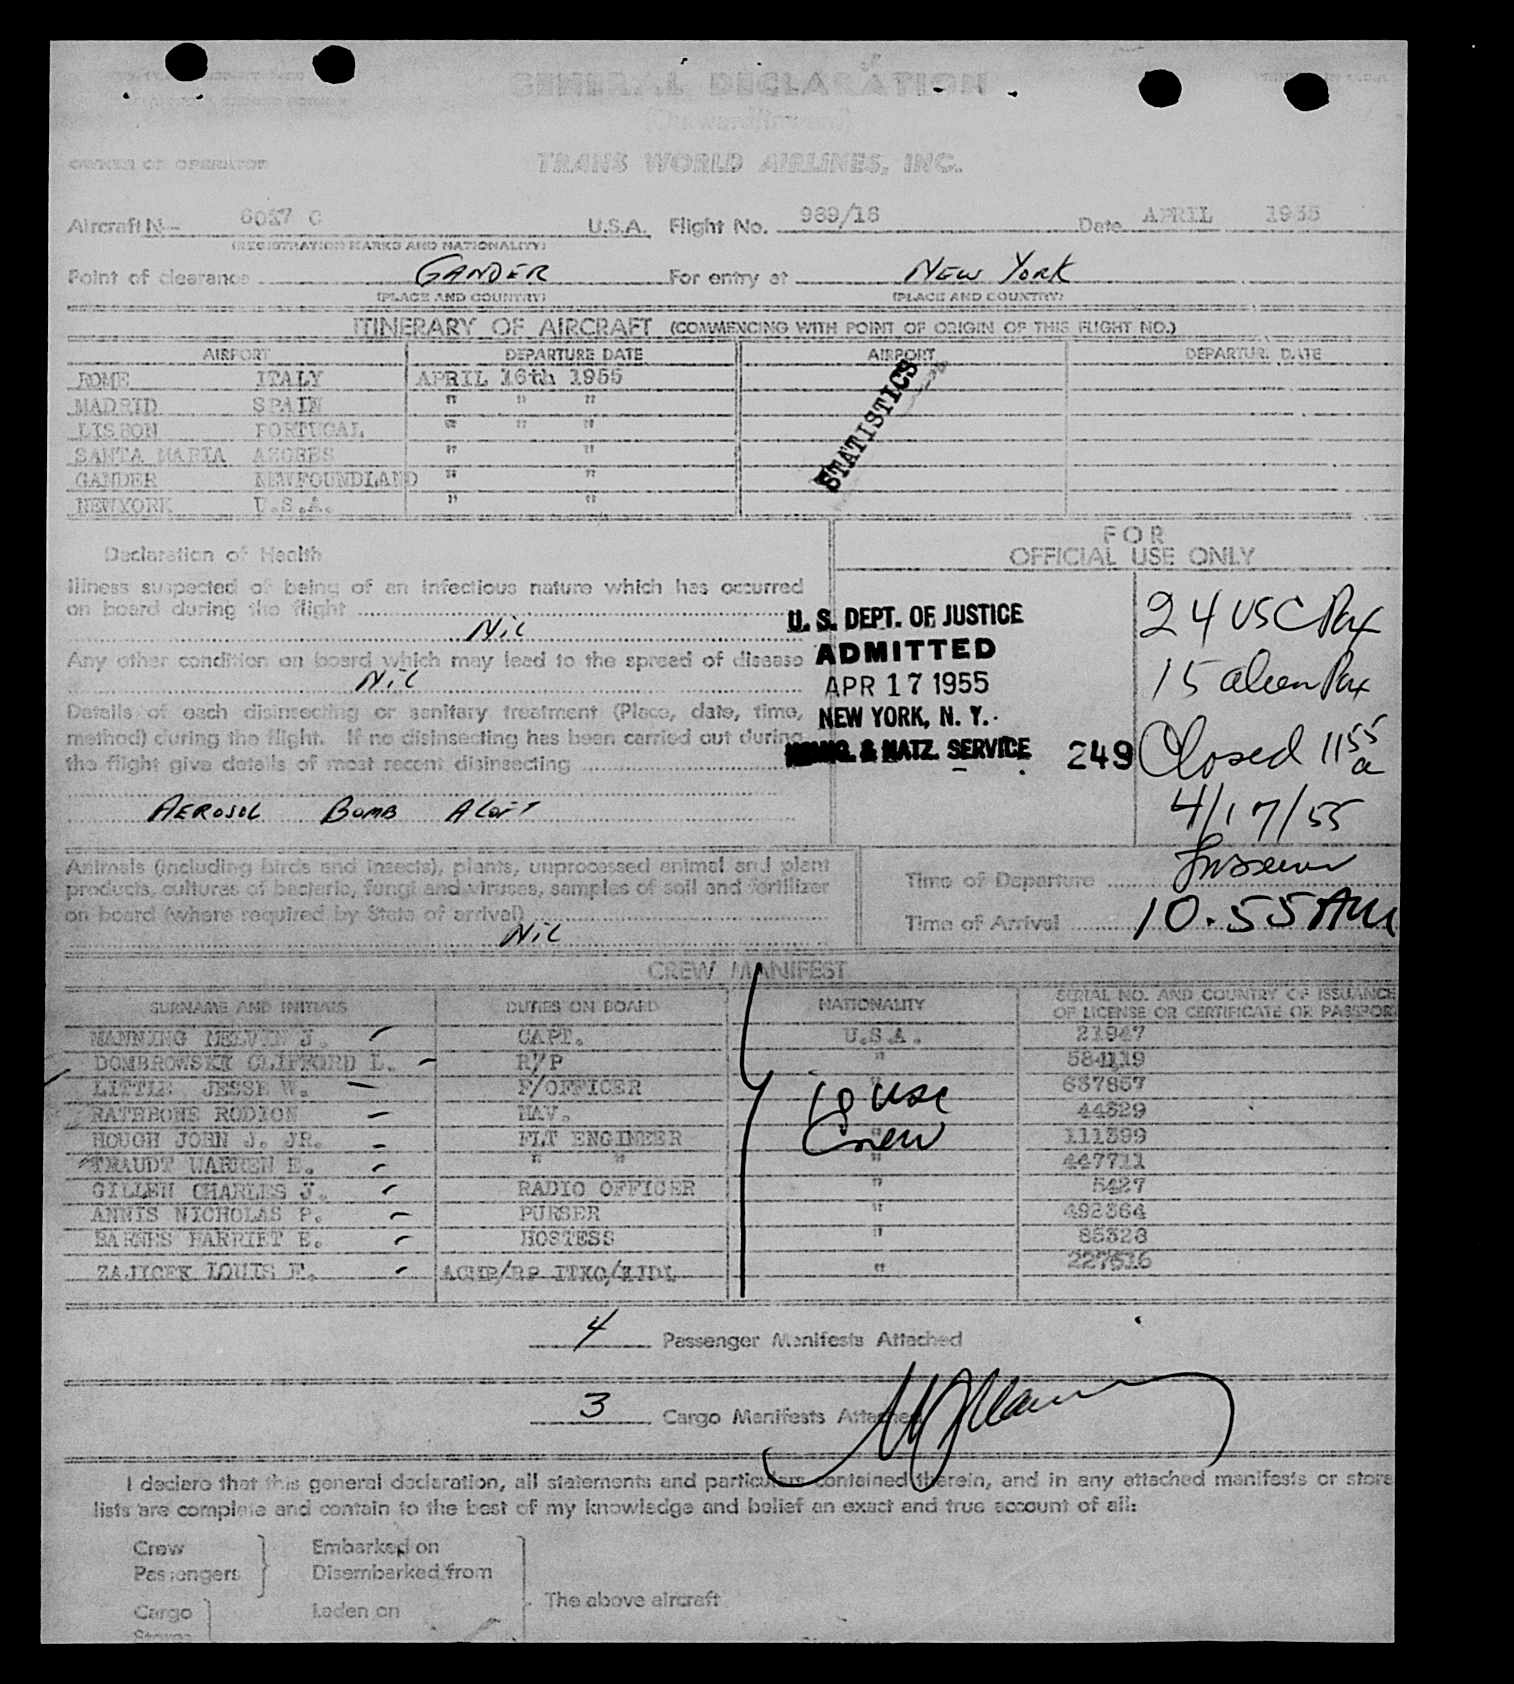 GENERAL DECLARATION
(Outward/Inward)
OWNER OR OPERATOR TRANS WORLD AIRLINES, INC.
Aircraft N- 6027 C U.S.A. Flight No. 969/16 Date APRIL 1955
(REGISTRATION MARKS AND NATIONALITY)
Point of clearance GANDER For entry at NEW YORK
(PLACE AND COUNTRY) (PLACE AND COUNTRY)
ITINERARY OF AIRCRAFT (COMMENCING WITH POINT OF ORIGIN OF THIS FLIGHT NO.)
AIRPORT DEPARTURE DATE AIRPORT DEPARTURE DATE
ROME ITALY APRIL 16th 1955
MADRID SPAIN " " "
LISBON PORTUGAL " " "
SANTA MARIA AZORES " "
GANDER NEWFOUNDLAND " "
NEWYORK U.S.A. " "
STATISTICS
FOR
OFFICIAL USE ONLY
Declaration of Health
Illness suspected of being of an infectious nature which has occurred
on board during the flight
Nil
Any other condition on board which may lead to the spread of disease
Nil
Details of each disinsecting or sanitary treatment (Place, date, time,
method) during the flight. If no disinsecting has been carried out during
the flight give details of most recent disinsecting
AEROSOL BOMB ALOFT
U. S. DEPT. OF JUSTICE
ADMITTED
APR 17 1955
NEW YORK, N. Y.
IMMIG. & NATZ. SERVICE 249
24 USC Pax
15 alien Pax
Closed 11 55 a
4/17/55
Animals (including birds and insects), plants, unprocessed animal and plant
products, cultures of bacteria, fungi and viruses, samples of soil and fertilizer
on board (where required by State of arrival)
Nil
Time of Departure
Time of Arrival 10.55 AM
CREW MANIFEST
SURNAME AND INITIALS DUTIES ON BOARD NATIONALITY SERIAL NO. AND COUNTRY OF ISSUANCE
OF LICENSE OR CERTIFICATE OR PASSPORT
MANNING MELVIN J. CAPT. U.S.A. 21947
DOMBROWSKI CLIFFORD L. R/P " 584119
LITTLE JESSE W. F/OFFICER " 637867
RATHBONE RODION NAV. 44529
HOUGH JOHN J. JR. FLT ENGINEER " 111399
TRAUDT WARREN E. " " " 447711
GILLEN CHARLES J. RADIO OFFICER " 5427
ANNIS NICHOLAS P. PURSER " 493364
BARNES HARRIET E. HOSTESS " 85328
ZAJICEK LOUIS F. " 227516
10 USC
Crew
4 Passenger Manifests Attached
3 Cargo Manifests Attached
I declare that this general declaration, all statements and particulars contained therein, and in any attached manifests or store
lists are complete and contain to the best of my knowledge and belief an exact and true account of all:
Crew Embarked on
Passengers Disembarked from
The above aircraft
Cargo Laden on
Stores